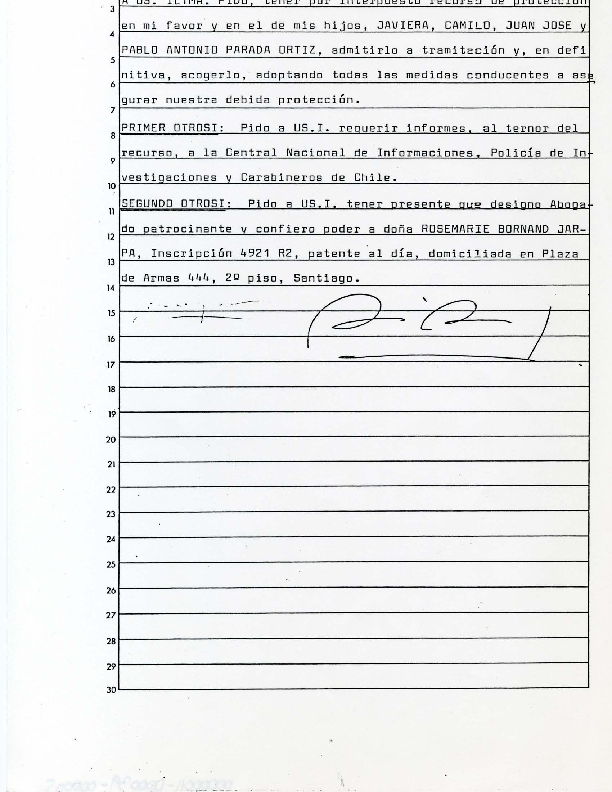 3 A US. ILTMA. Pido, tener por interpuesto recurso de protección
4 en mi favor y en el de mis hijos, JAVIERA, CAMILO, JUAN JOSE y
5 PABLO ANTONIO PARADA ORTIZ, admitirlo a tramitación y, en defi
6 nitiva, acogerlo, adoptando todas las medidas conducentes a ase
7 gurar nuestra debida protección.
8 PRIMER OTROSI: Pido a US.I. requerir informes, al tenor del
9 recurso, a la Central Nacional de Informaciones, Policía de In-
10 vestigaciones y Carabineros de Chile.
11 SEGUNDO OTROSI: Pido a US.I. tener presente que designo Aboga-
12 do patrocinante y confiero poder a doña ROSEMARIE BORNAND JAR-
13 PA, Inscripción 4921 R2, patente al día, domiciliada en Plaza
14 de Armas 444, 2º piso, Santiago.
15
16
17
18
19
20
21
22
23
24
25
26
27
28
29
30